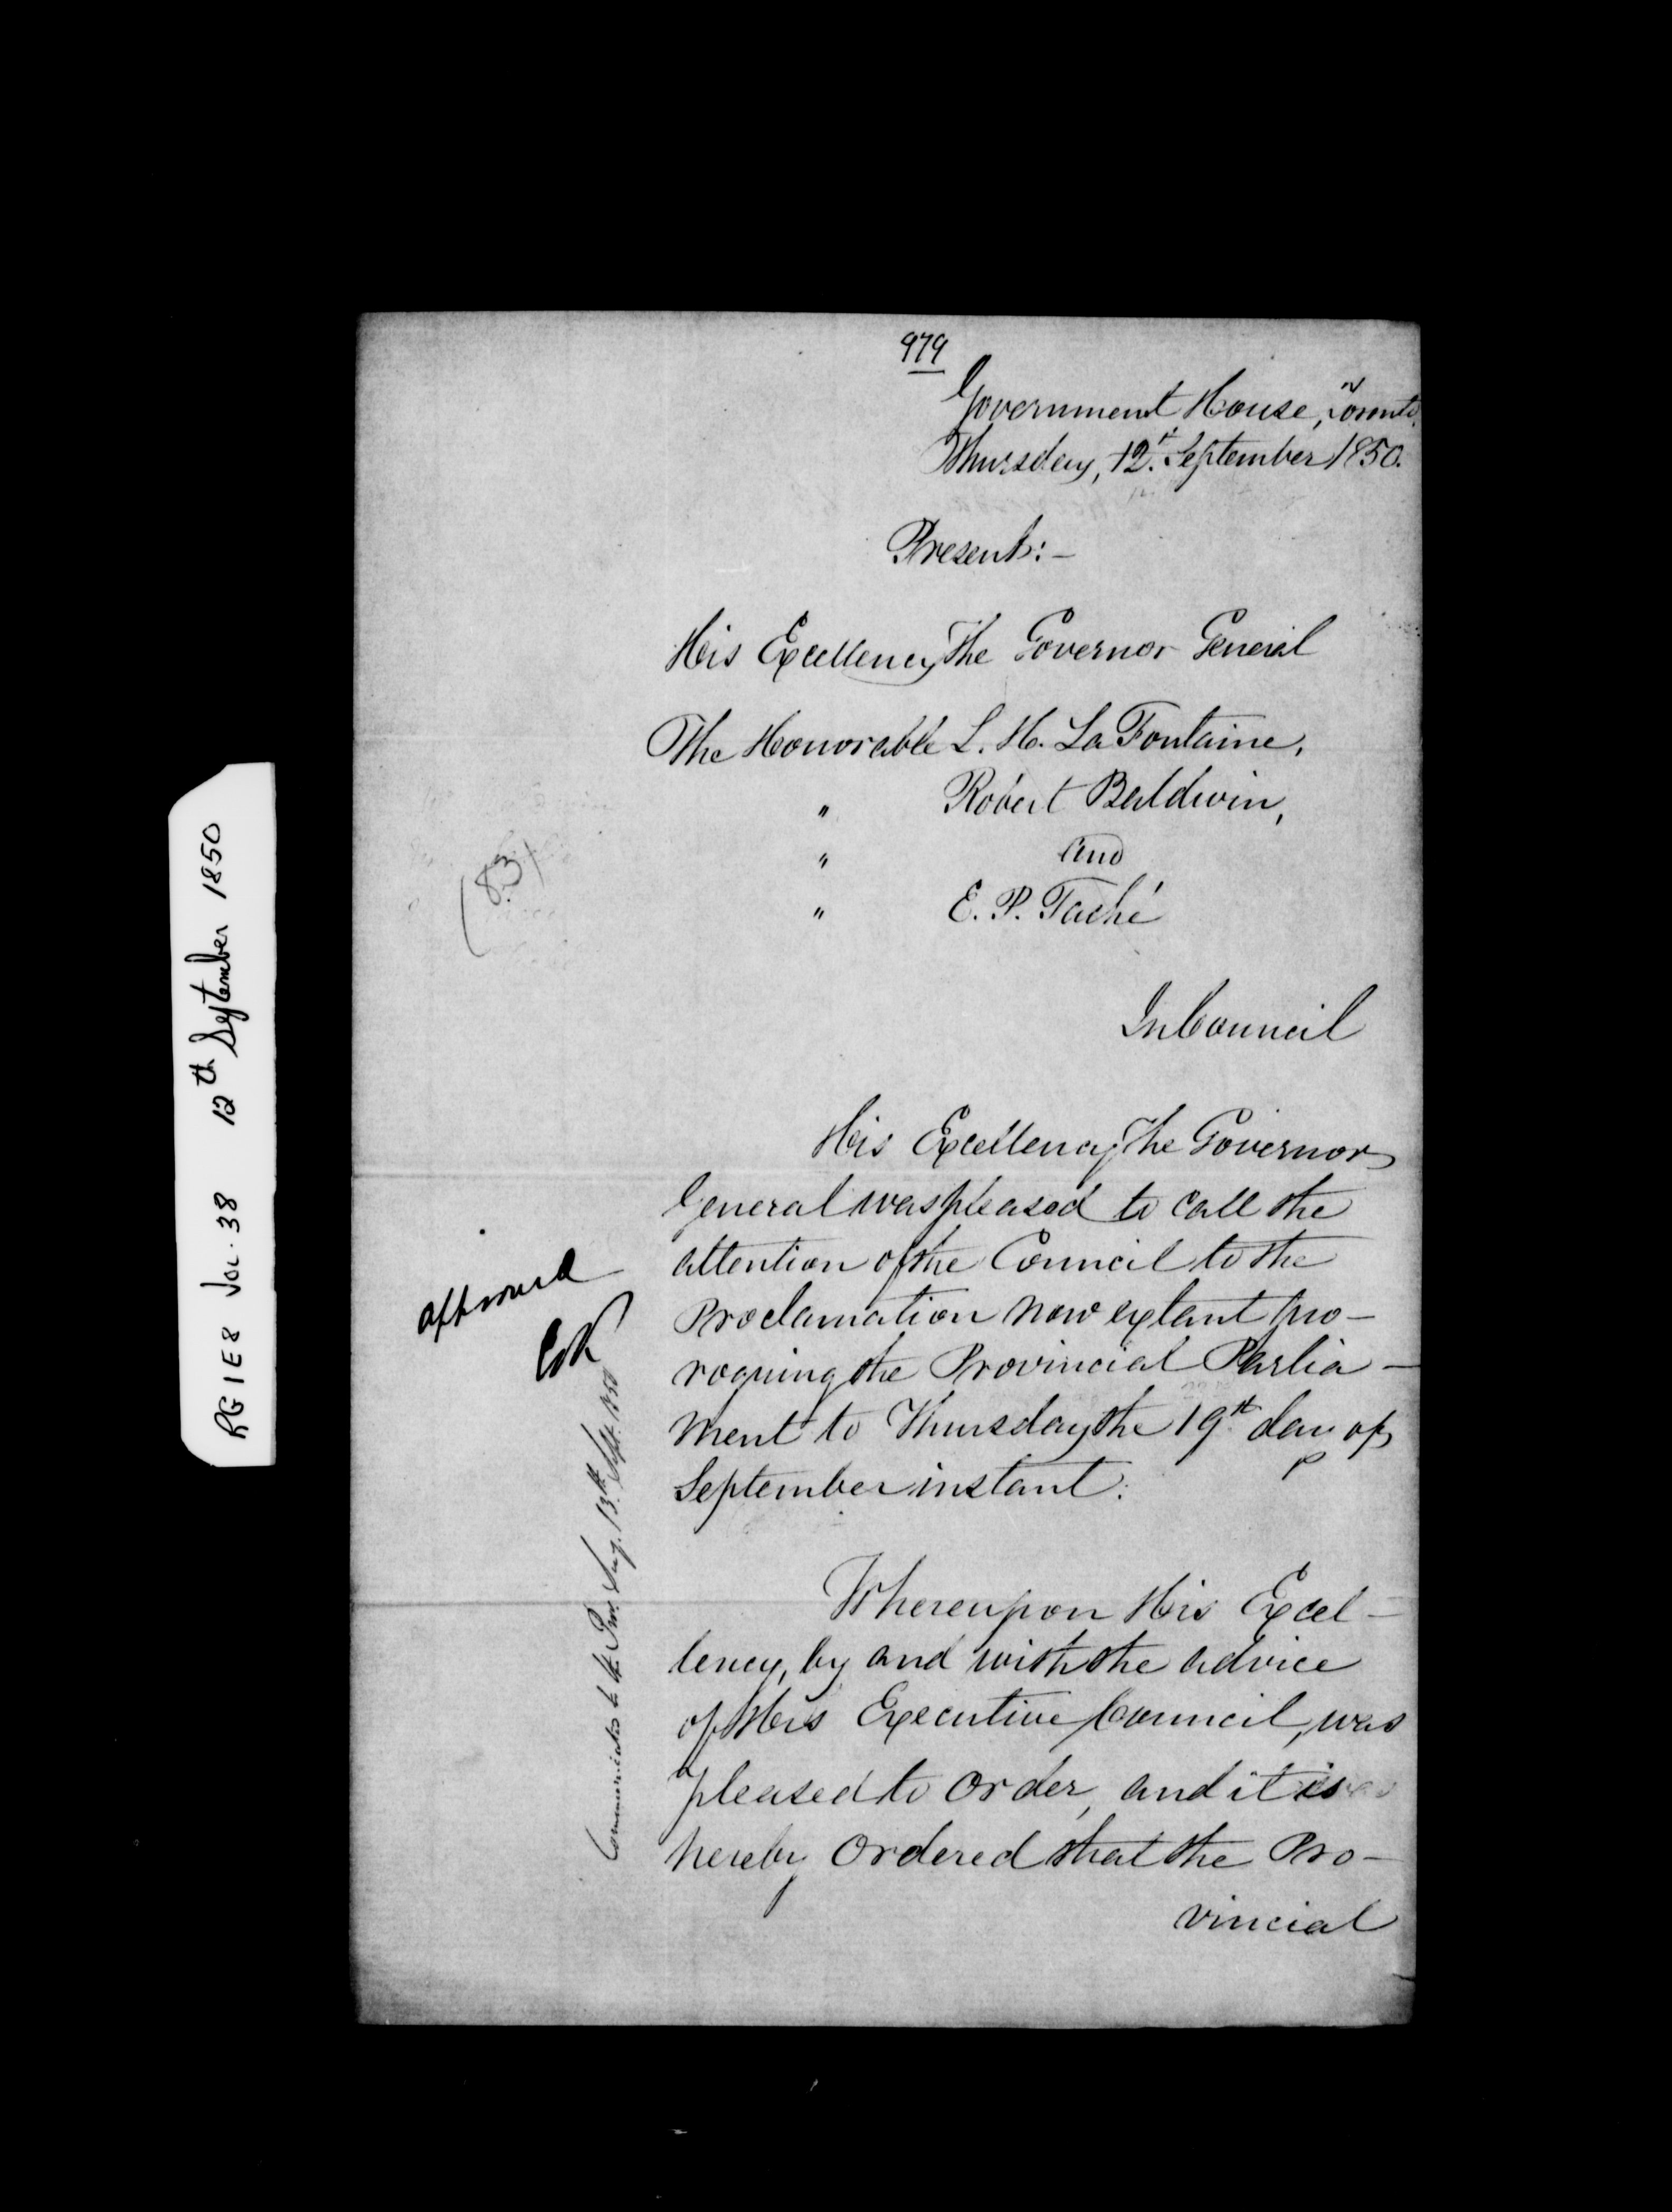 979
Government House, Toronto.
Thursday, 12th September 1850.
Present:-
His Excellency The Governor General
The Honorable L. H. LaFontaine,
" Robert Baldwin,
" and
" E. P. Taché
In Council
(83)
His Excellency The Governor
General was pleased to call the
attention of the Council to the
Proclamation now extant pro-
roguing the Provincial Parlia-
ment to Thursday the 19th day of
September instant.
approved
Whereupon His Excel-
lency, by and with the advice
of His Executive Council, was
pleased to order, and it is
hereby Ordered that the Pro-
vincial
Communicated to the Prov. Secy. 13th Sept. 1850
RG 1 E 8 Vol. 38 12th September 1850